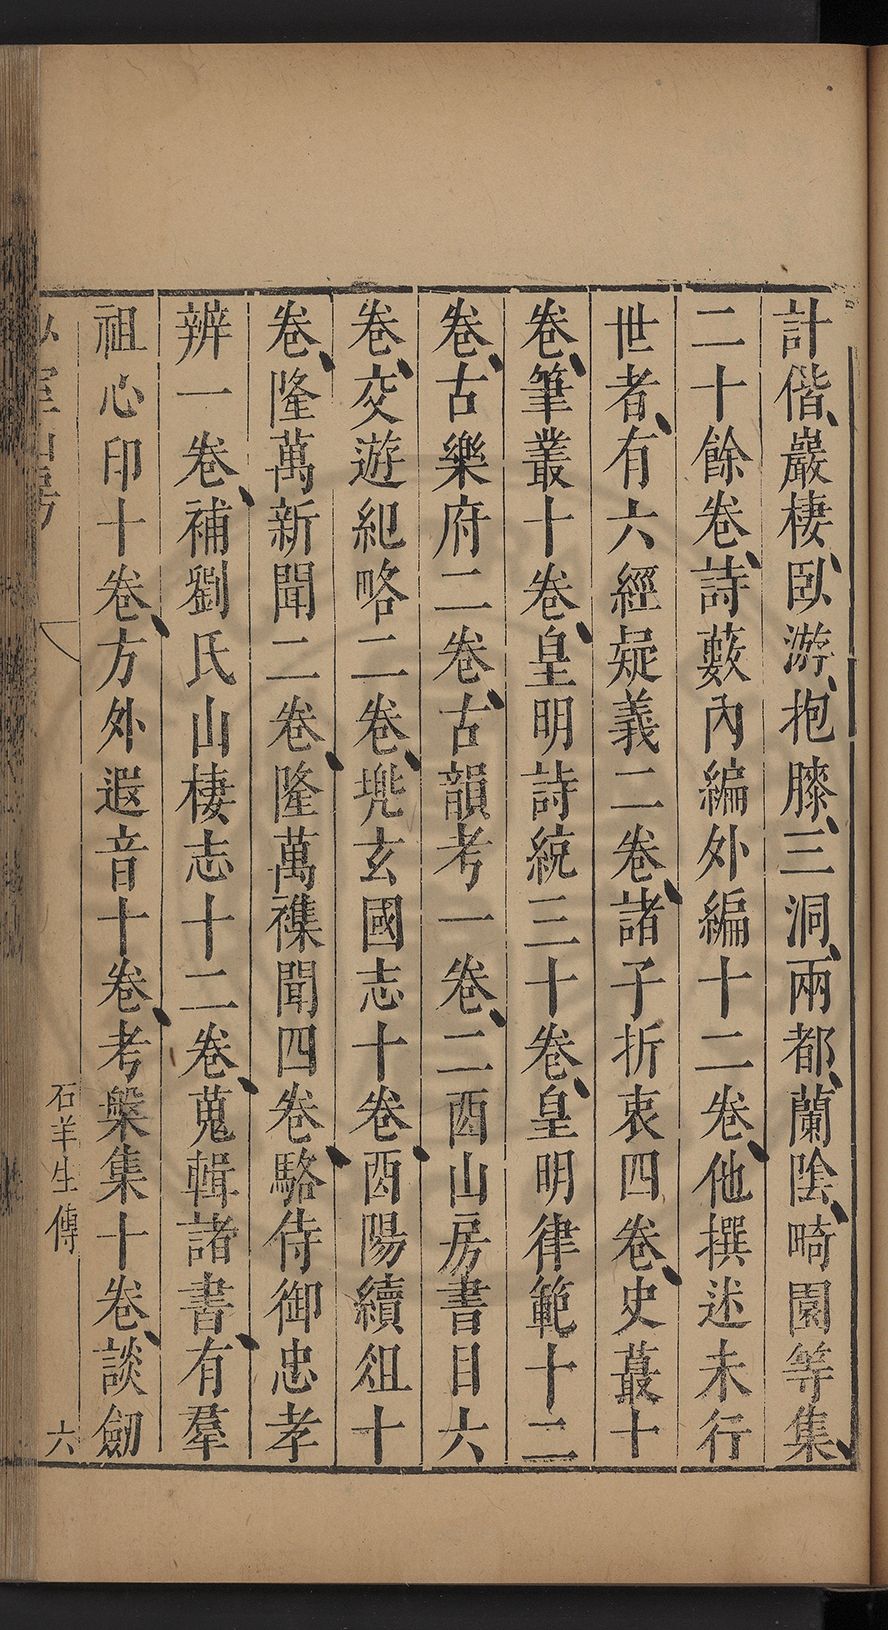 計偕、巖棲、臥游、抱膝、三洞、兩都、蘭陰、畸園等集、
二十餘卷、詩藪內編外編十二卷、他撰述未行
世者、有六經疑義二卷、諸子折衷四卷、史蕞十
卷、筆叢十卷、皇明詩統三十卷、皇明律範十二
卷、古樂府二卷、古韻考一卷、二酉山房書目六
卷、交遊紀略二卷、兠玄國志十卷、酉陽續俎十
卷、隆萬新聞二卷、隆萬襍聞四卷、駱侍御忠孝
辨一卷、補劉氏山棲志十二卷、蒐輯諸書、有羣
祖心印十卷、方外遐音十卷、考槃集十卷、談劒
少室山房
石羊生傳
六